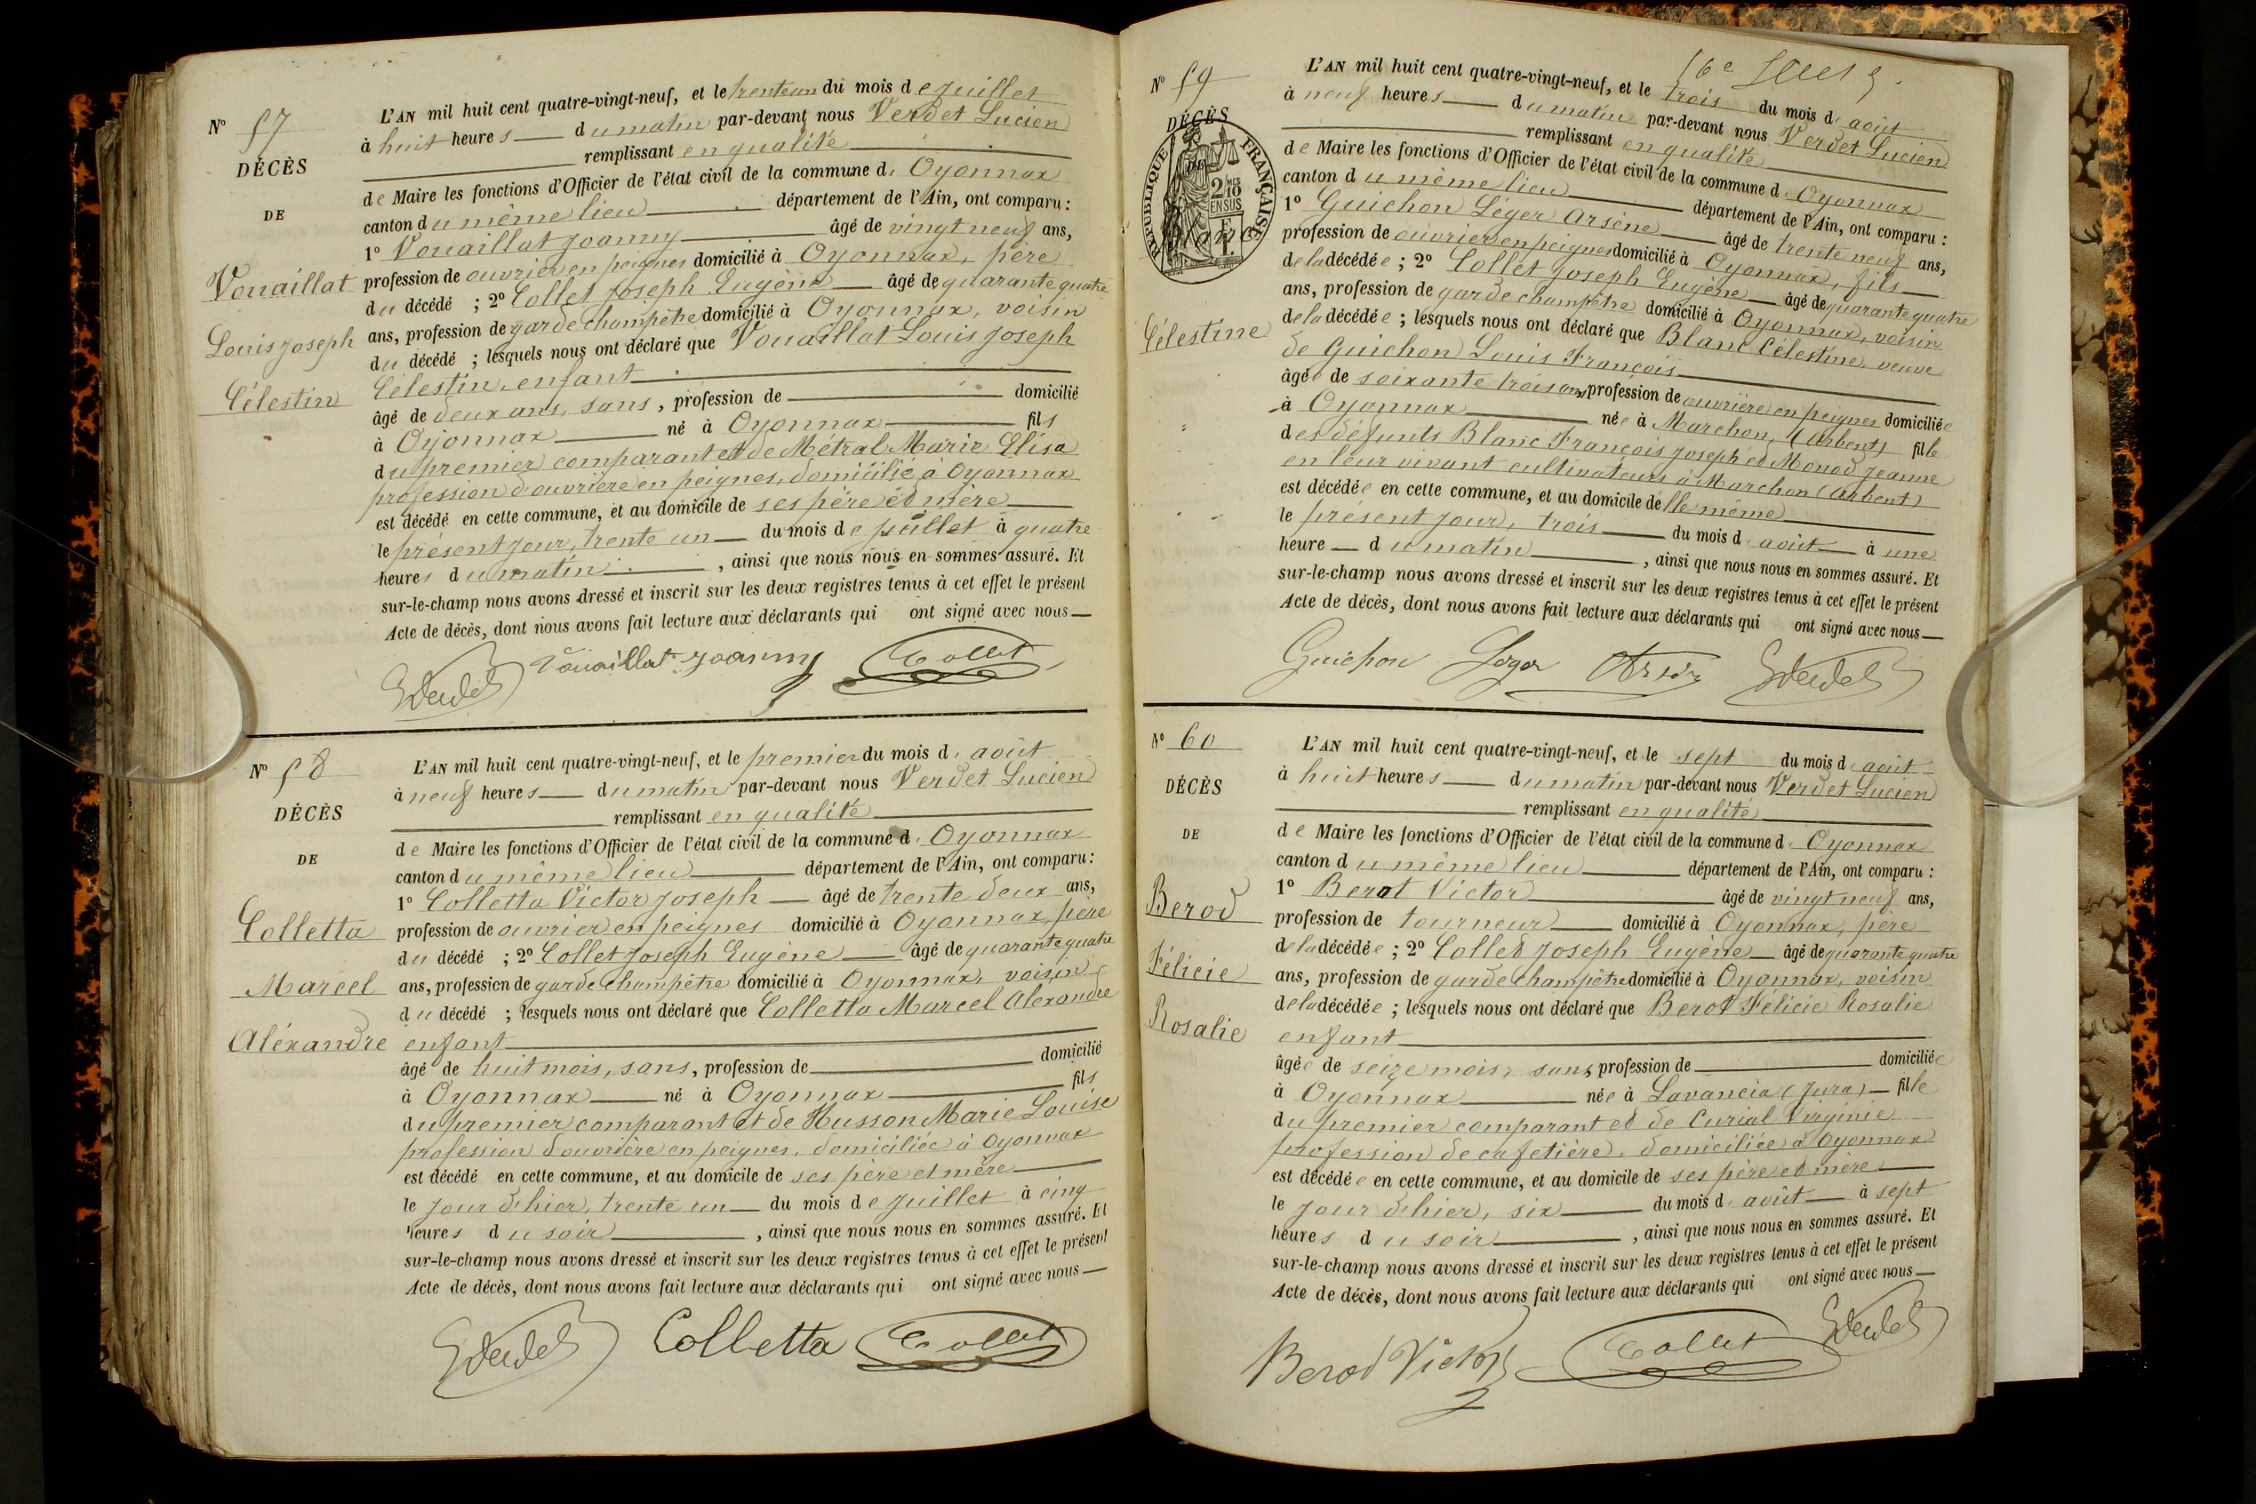 Nº 57
DÉCÈS
DE
Vouaillat
Louis Joseph
Célestin
L'AN mil huit cent quatre-vingt-neuf, et le trente un du mois de juillet
à huit heures du matin par-devant nous Verdet Lucien
remplissant en qualité
de Maire les fonctions d'Officier de l'état civil de la commune d' Oyonnax
canton du même lieu département de l'Ain, ont comparu :
1º Vouaillat Joanny âgé de vingt neuf ans,
profession de ouvrier en peignes domicilié à Oyonnax, père
du décédé ; 2º Collet Joseph Eugène âgé de quarante quatre
ans, profession de garde champêtre domicilié à Oyonnax, voisin
du décédé ; lesquels nous ont déclaré que Vouaillat Louis Joseph
Célestin, enfant
âgé de deux ans, sans, profession de domicilié
à Oyonnax né à Oyonnax fils
du premier comparant et de Métral Marie Elisa
profession d'ouvrière en peignes, domiciliée à Oyonnax
est décédé en cette commune, et au domicile de ses père et mère
le présent jour, trente un du mois de juillet à quatre
heures du matin, ainsi que nous nous en sommes assuré. Et
sur-le-champ nous avons dressé et inscrit sur les deux registres tenus à cet effet le présent
Acte de décès, dont nous avons fait lecture aux déclarants qui ont signé avec nous
LVerdet Vouaillat Joanny Collet
Nº 58
DÉCÈS
DE
Colletta
Marcel
Aléxandre
L'AN mil huit cent quatre-vingt-neuf, et le premier du mois d' août
à neuf heures du matin par-devant nous Verdet Lucien
remplissant en qualité
de Maire les fonctions d'Officier de l'état civil de la commune d' Oyonnax
canton du même lieu département de l'Ain, ont comparu :
1º Colletta Victor Joseph âgé de trente deux ans,
profession de ouvrier en peignes domicilié à Oyonnax, père
du décédé ; 2º Collet Joseph Eugène âgé de quarante quatre
ans, profession de garde champêtre domicilié à Oyonnax, voisin
du décédé ; lesquels nous ont déclaré que Colletta Marcel Alexandre
enfant
âgé de huit mois, sans, profession de domicilié
à Oyonnax né à Oyonnax fils
du premier comparant et de Husson Marie Louise
profession d'ouvrière en peignes, domiciliée à Oyonnax
est décédé en cette commune, et au domicile de ses père et mère
le jour d'hier, trente un du mois de juillet à cinq
heures du soir, ainsi que nous nous en sommes assuré. Et
sur-le-champ nous avons dressé et inscrit sur les deux registres tenus à cet effet le présent
Acte de décès, dont nous avons fait lecture aux déclarants qui ont signé avec nous
LVerdet Colletta Collet
16e
Nº 59
DÉCÈS
RÉPUBLIQUE FRANÇAISE
2/10 EN SUS
Célestine
L'AN mil huit cent quatre-vingt-neuf, et le trois du mois d' août
à neuf heures du matin par-devant nous Verdet Lucien
remplissant en qualité
de Maire les fonctions d'Officier de l'état civil de la commune d' Oyonnax
canton du même lieu département de l'Ain, ont comparu :
1º Guichon Léger Arsène âgé de trente neuf ans,
profession de ouvrier en peignes domicilié à Oyonnax, fils
de la décédée ; 2º Collet Joseph Eugène âgé de quarante quatre
ans, profession de garde champêtre domicilié à Oyonnax, voisin
de la décédée ; lesquels nous ont déclaré que Blanc Célestine, veuve
de Guichon Louis François
âgée de soixante trois ans, profession de ouvrière en peignes domiciliée
à Oyonnax née à Marchon, (Arbent) fille
des défunts Blanc François Joseph et Monod Jeanne
en leur vivant cultivateurs à Marchon (Arbent)
est décédée en cette commune, et au domicile d'elle même
le présent jour, trois du mois d' août à une
heure du matin, ainsi que nous nous en sommes assuré. Et
sur-le-champ nous avons dressé et inscrit sur les deux registres tenus à cet effet le présent
Acte de décès, dont nous avons fait lecture aux déclarants qui ont signé avec nous
Guichon Leger Arsène LVerdet
Nº 60
DÉCÈS
DE
Berod
Félicie
Rosalie
L'AN mil huit cent quatre-vingt-neuf, et le sept du mois d' août
à huit heures du matin par-devant nous Verdet Lucien
remplissant en qualité
de Maire les fonctions d'Officier de l'état civil de la commune d' Oyonnax
canton du même lieu département de l'Ain, ont comparu :
1º Berot Victor âgé de vingt neuf ans,
profession de tourneur domicilié à Oyonnax, père
de la décédée ; 2º Collet Joseph Eugène âgé de quarante quatre
ans, profession de garde champêtre domicilié à Oyonnax, voisin
de la décédée ; lesquels nous ont déclaré que Berot Félicie Rosalie
enfant
âgée de seize mois, sans, profession de domiciliée
à Oyonnax née à Lavancia (Jura) fille
du premier comparant et de Curial Virginie
profession de cafetière, domiciliée à Oyonnax
est décédée en cette commune, et au domicile de ses père et mère
le jour d'hier, six du mois d' août à sept
heures du soir, ainsi que nous nous en sommes assuré. Et
sur-le-champ nous avons dressé et inscrit sur les deux registres tenus à cet effet le présent
Acte de décès, dont nous avons fait lecture aux déclarants qui ont signé avec nous
Berod Victor Collet LVerdet